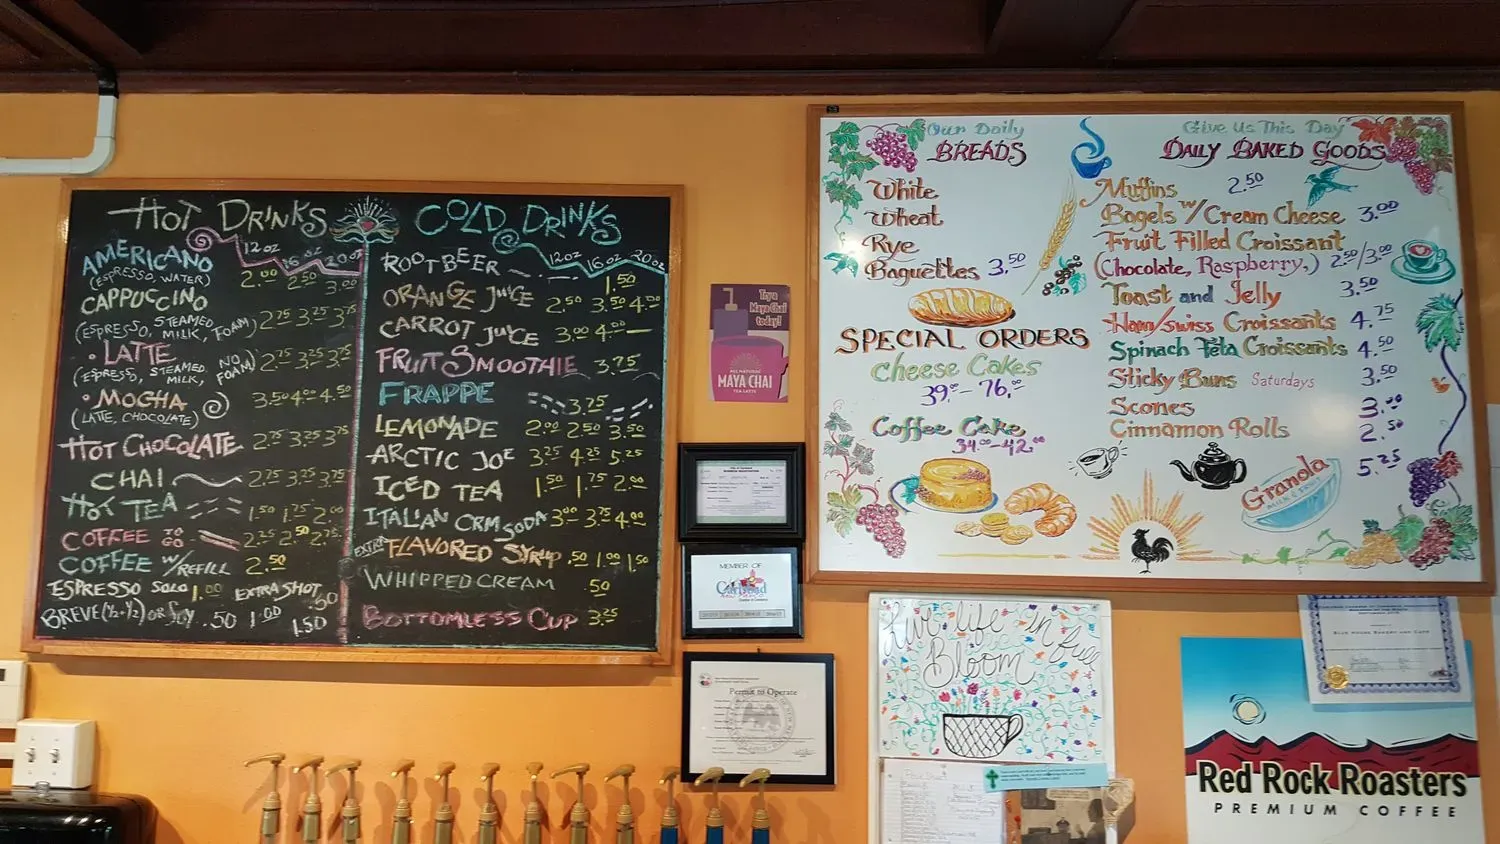 HOT DRINKS
12oz 16oz 20oz
AMERICANO
(ESPRESSO, WATER) 2.00 2.50 3.00
CAPPUCCINO
(ESPRESSO, STEAMED MILK, FOAM) 2.75 3.25 3.75
• LATTE
(ESPRESSO, STEAMED MILK, NO FOAM) 2.75 3.25 3.75
• MOCHA 3.50 4.00 4.50
(LATTE, CHOCOLATE)
HOT CHOCOLATE 2.75 3.25 3.75
CHAI 2.75 3.25 3.75
HOT TEA 1.50 1.75 2.00
COFFEE TO GO 2.25 2.50 2.75
COFFEE W/REFILL 2.50
ESPRESSO SOLO 1.00 EXTRA SHOT .50
BREVE (½+½) OR SOY .50 1.00 1.50
COLD DRINKS
12oz 16oz 20oz
ROOTBEER 1.50
ORANGE JUICE 2.50 3.50 4.00
CARROT JUICE 3.00 4.00
FRUIT SMOOTHIE 3.75
FRAPPE 3.75
LEMONADE 2.00 2.50 3.50
ARCTIC JOE 3.25 4.25 5.25
ICED TEA 1.50 1.75 2.00
ITALIAN CRM SODA 3.00 3.75 4.00
EXTRA FLAVORED SYRUP .50 1.00 1.50
WHIPPED CREAM .50
BOTTOMLESS CUP 3.25
Try a
Maya Chai
today!
ALL NATURAL
MAYA CHAI
TEA LATTE
MEMBER OF
Carlsbad
Permit to Operate
Our Daily
BREADS
White
Wheat
Rye
Baguettes 3.50
SPECIAL ORDERS
Cheese Cakes
39.00-76.00
Coffee Cake
34.00-42.00
Give Us This Day
DAILY BAKED GOODS
Muffins 2.50
Bagels w/Cream Cheese 3.00
Fruit Filled Croissant
(Chocolate, Raspberry,) 2.50/3.00
Toast and Jelly 3.50
Ham/swiss Croissants 4.75
Spinach Feta Croissants 4.50
Sticky Buns Saturdays 3.50
Scones 3.00
Cinnamon Rolls 2.50
5.25
Granola
MILK & FRUIT
Live life in full
Bloom
BLUE HOUSE BAKERY AND CAFE
Red Rock Roasters
PREMIUM COFFEE